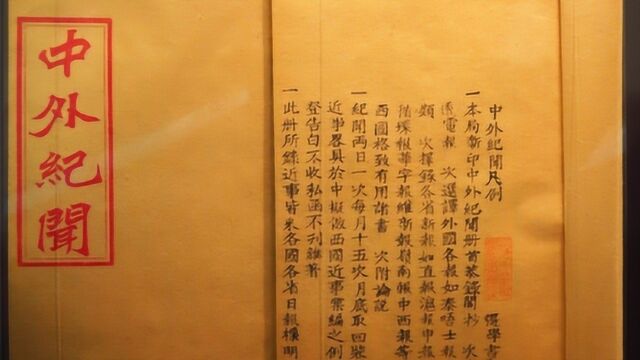 中外紀聞
中外紀聞凡例 彊學書
一本局新印中外紀聞册首恭錄閣抄 次
透電報 次選譯外國各報如泰晤士報
類 次擇錄各省新報如直報滬報申報
循環報華字報維新報嶺南報中西報等
西國格致有用諸書 次附論說
一紀聞兩日一次每月十五次月底取回裝
近事畧具於中擬倣西國近事彙編之例
登告白不收私函不刊雜著
一此册所錄近事皆采各國各省日報標明